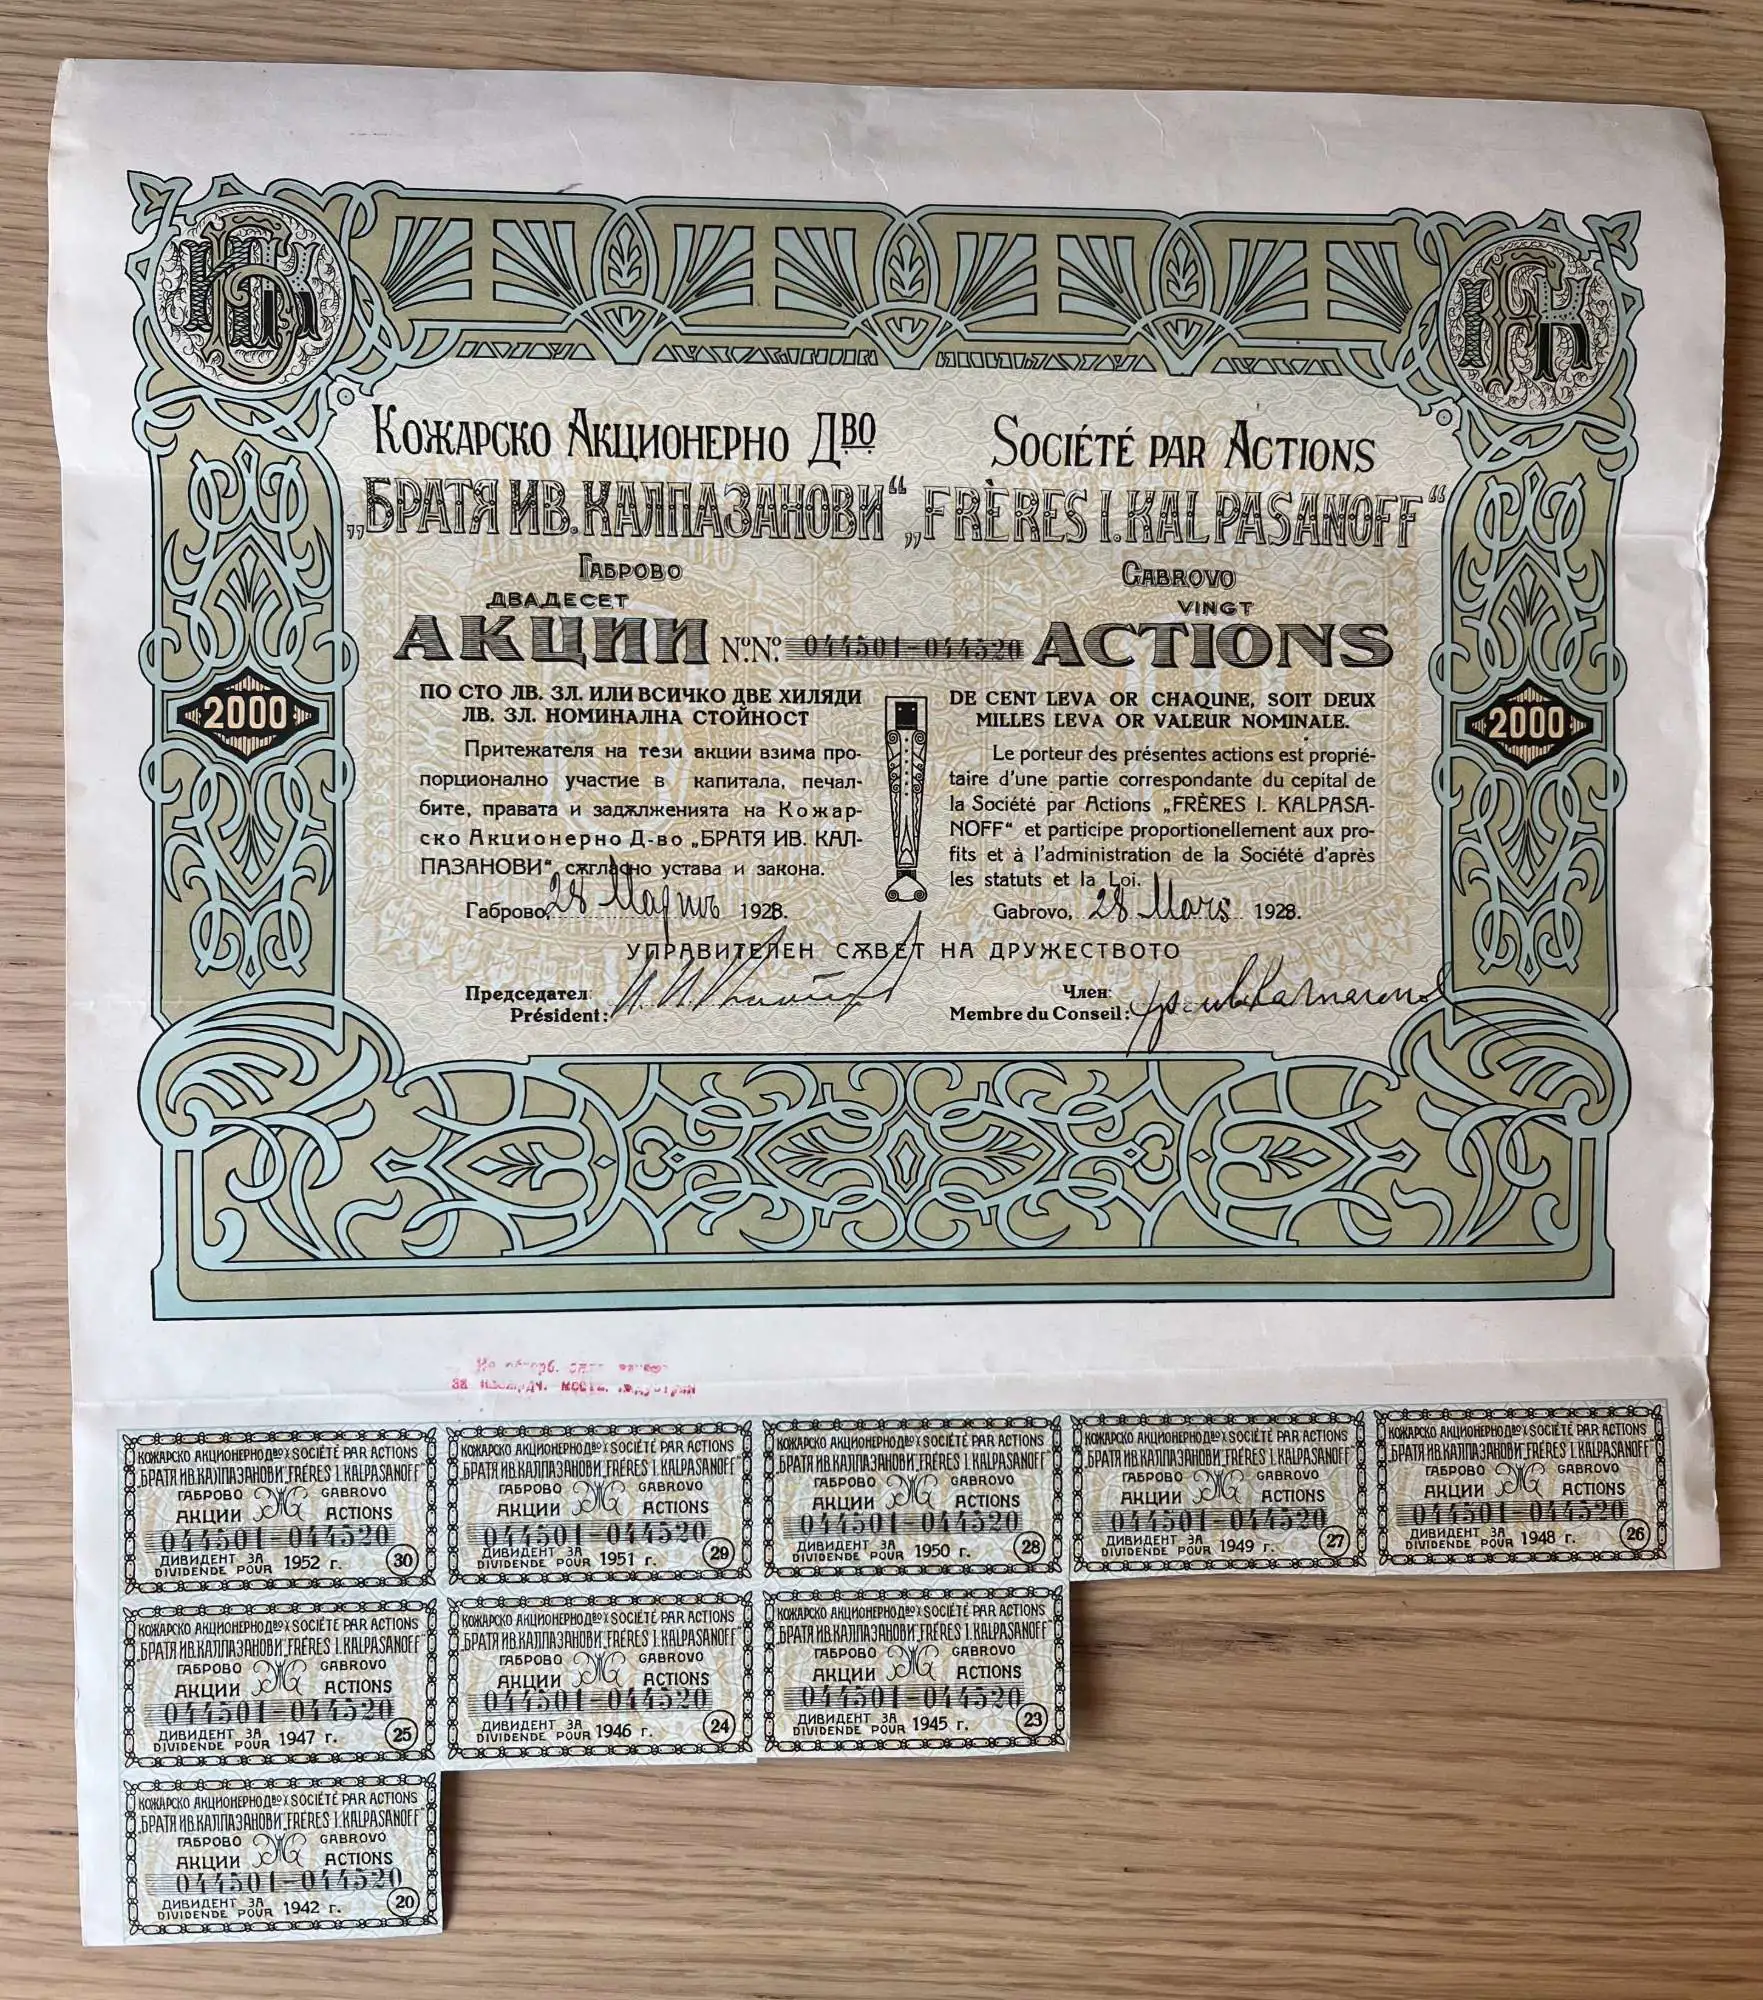 Кожарско Акционерно Дво
„БРАТЯ ИВ. КАЛПАЗАНОВИ“
Габрово
ДВАДЕСЕТ
АКЦИИ
№№ 044501-044520
ПО СТО ЛВ. ЗЛ. ИЛИ ВСИЧКО ДВЕ ХИЛЯДИ
ЛВ. ЗЛ. НОМИНАЛНА СТОЙНОСТ
Притежателя на тези акции взима про-
порционално участие в капитала, печал-
бите, правата и задѫлженията на Кожар-
ско Акционерно Д-во „БРАТЯ ИВ. КАЛ-
ПАЗАНОВИ“ сѫгласно устава и закона.
Габрово, 28 Мартъ 1928.
Société par Actions
„FRÈRES I. KALPASANOFF“
Gabrovo
VINGT
ACTIONS
DE CENT LEVA OR CHAQUNE, SOIT DEUX
MILLES LEVA OR VALEUR NOMINALE.
Le porteur des présentes actions est proprié-
taire d'une partie correspondante du cepital de
la Société par Actions „FRÈRES I. KALPASA-
NOFF“ et participe proportionellement aux pro-
fits et à l'administration de la Société d'après
les statuts et la Loi.
Gabrovo, 28 Mars 1928.
2000
2000
УПРАВИТЕЛЕН СѪВЕТ НА ДРУЖЕСТВОТО
Председател:
Président:
Член:
Membre du Conseil:
КОЖАРСКО АКЦИОНЕРНО Дво SOCIÉTÉ PAR ACTIONS
„БРАТЯ ИВ. КАЛПАЗАНОВИ“ „FRÈRES I. KALPASANOFF“
ГАБРОВО GABROVO
АКЦИИ ACTIONS
044501-044520
ДИВИДЕНТ ЗА
DIVIDENDE POUR 1952 г. 30
КОЖАРСКО АКЦИОНЕРНО Дво SOCIÉTÉ PAR ACTIONS
„БРАТЯ ИВ. КАЛПАЗАНОВИ“ „FRÈRES I. KALPASANOFF“
ГАБРОВО GABROVO
АКЦИИ ACTIONS
044501-044520
ДИВИДЕНТ ЗА
DIVIDENDE POUR 1951 г. 29
КОЖАРСКО АКЦИОНЕРНО Дво SOCIÉTÉ PAR ACTIONS
„БРАТЯ ИВ. КАЛПАЗАНОВИ“ „FRÈRES I. KALPASANOFF“
ГАБРОВО GABROVO
АКЦИИ ACTIONS
044501-044520
ДИВИДЕНТ ЗА
DIVIDENDE POUR 1950 г. 28
КОЖАРСКО АКЦИОНЕРНО Дво SOCIÉTÉ PAR ACTIONS
„БРАТЯ ИВ. КАЛПАЗАНОВИ“ „FRÈRES I. KALPASANOFF“
ГАБРОВО GABROVO
АКЦИИ ACTIONS
044501-044520
ДИВИДЕНТ ЗА
DIVIDENDE POUR 1949 г. 27
КОЖАРСКО АКЦИОНЕРНО Дво SOCIÉTÉ PAR ACTIONS
„БРАТЯ ИВ. КАЛПАЗАНОВИ“ „FRÈRES I. KALPASANOFF“
ГАБРОВО GABROVO
АКЦИИ ACTIONS
044501-044520
ДИВИДЕНТ ЗА
DIVIDENDE POUR 1948 г. 26
КОЖАРСКО АКЦИОНЕРНО Дво SOCIÉTÉ PAR ACTIONS
„БРАТЯ ИВ. КАЛПАЗАНОВИ“ „FRÈRES I. KALPASANOFF“
ГАБРОВО GABROVO
АКЦИИ ACTIONS
044501-044520
ДИВИДЕНТ ЗА
DIVIDENDE POUR 1947 г. 25
КОЖАРСКО АКЦИОНЕРНО Дво SOCIÉTÉ PAR ACTIONS
„БРАТЯ ИВ. КАЛПАЗАНОВИ“ „FRÈRES I. KALPASANOFF“
ГАБРОВО GABROVO
АКЦИИ ACTIONS
044501-044520
ДИВИДЕНТ ЗА
DIVIDENDE POUR 1946 г. 24
КОЖАРСКО АКЦИОНЕРНО Дво SOCIÉTÉ PAR ACTIONS
„БРАТЯ ИВ. КАЛПАЗАНОВИ“ „FRÈRES I. KALPASANOFF“
ГАБРОВО GABROVO
АКЦИИ ACTIONS
044501-044520
ДИВИДЕНТ ЗА
DIVIDENDE POUR 1945 г. 23
КОЖАРСКО АКЦИОНЕРНО Дво SOCIÉTÉ PAR ACTIONS
„БРАТЯ ИВ. КАЛПАЗАНОВИ“ „FRÈRES I. KALPASANOFF“
ГАБРОВО GABROVO
АКЦИИ ACTIONS
044501-044520
ДИВИДЕНТ ЗА
DIVIDENDE POUR 1942 г. 20